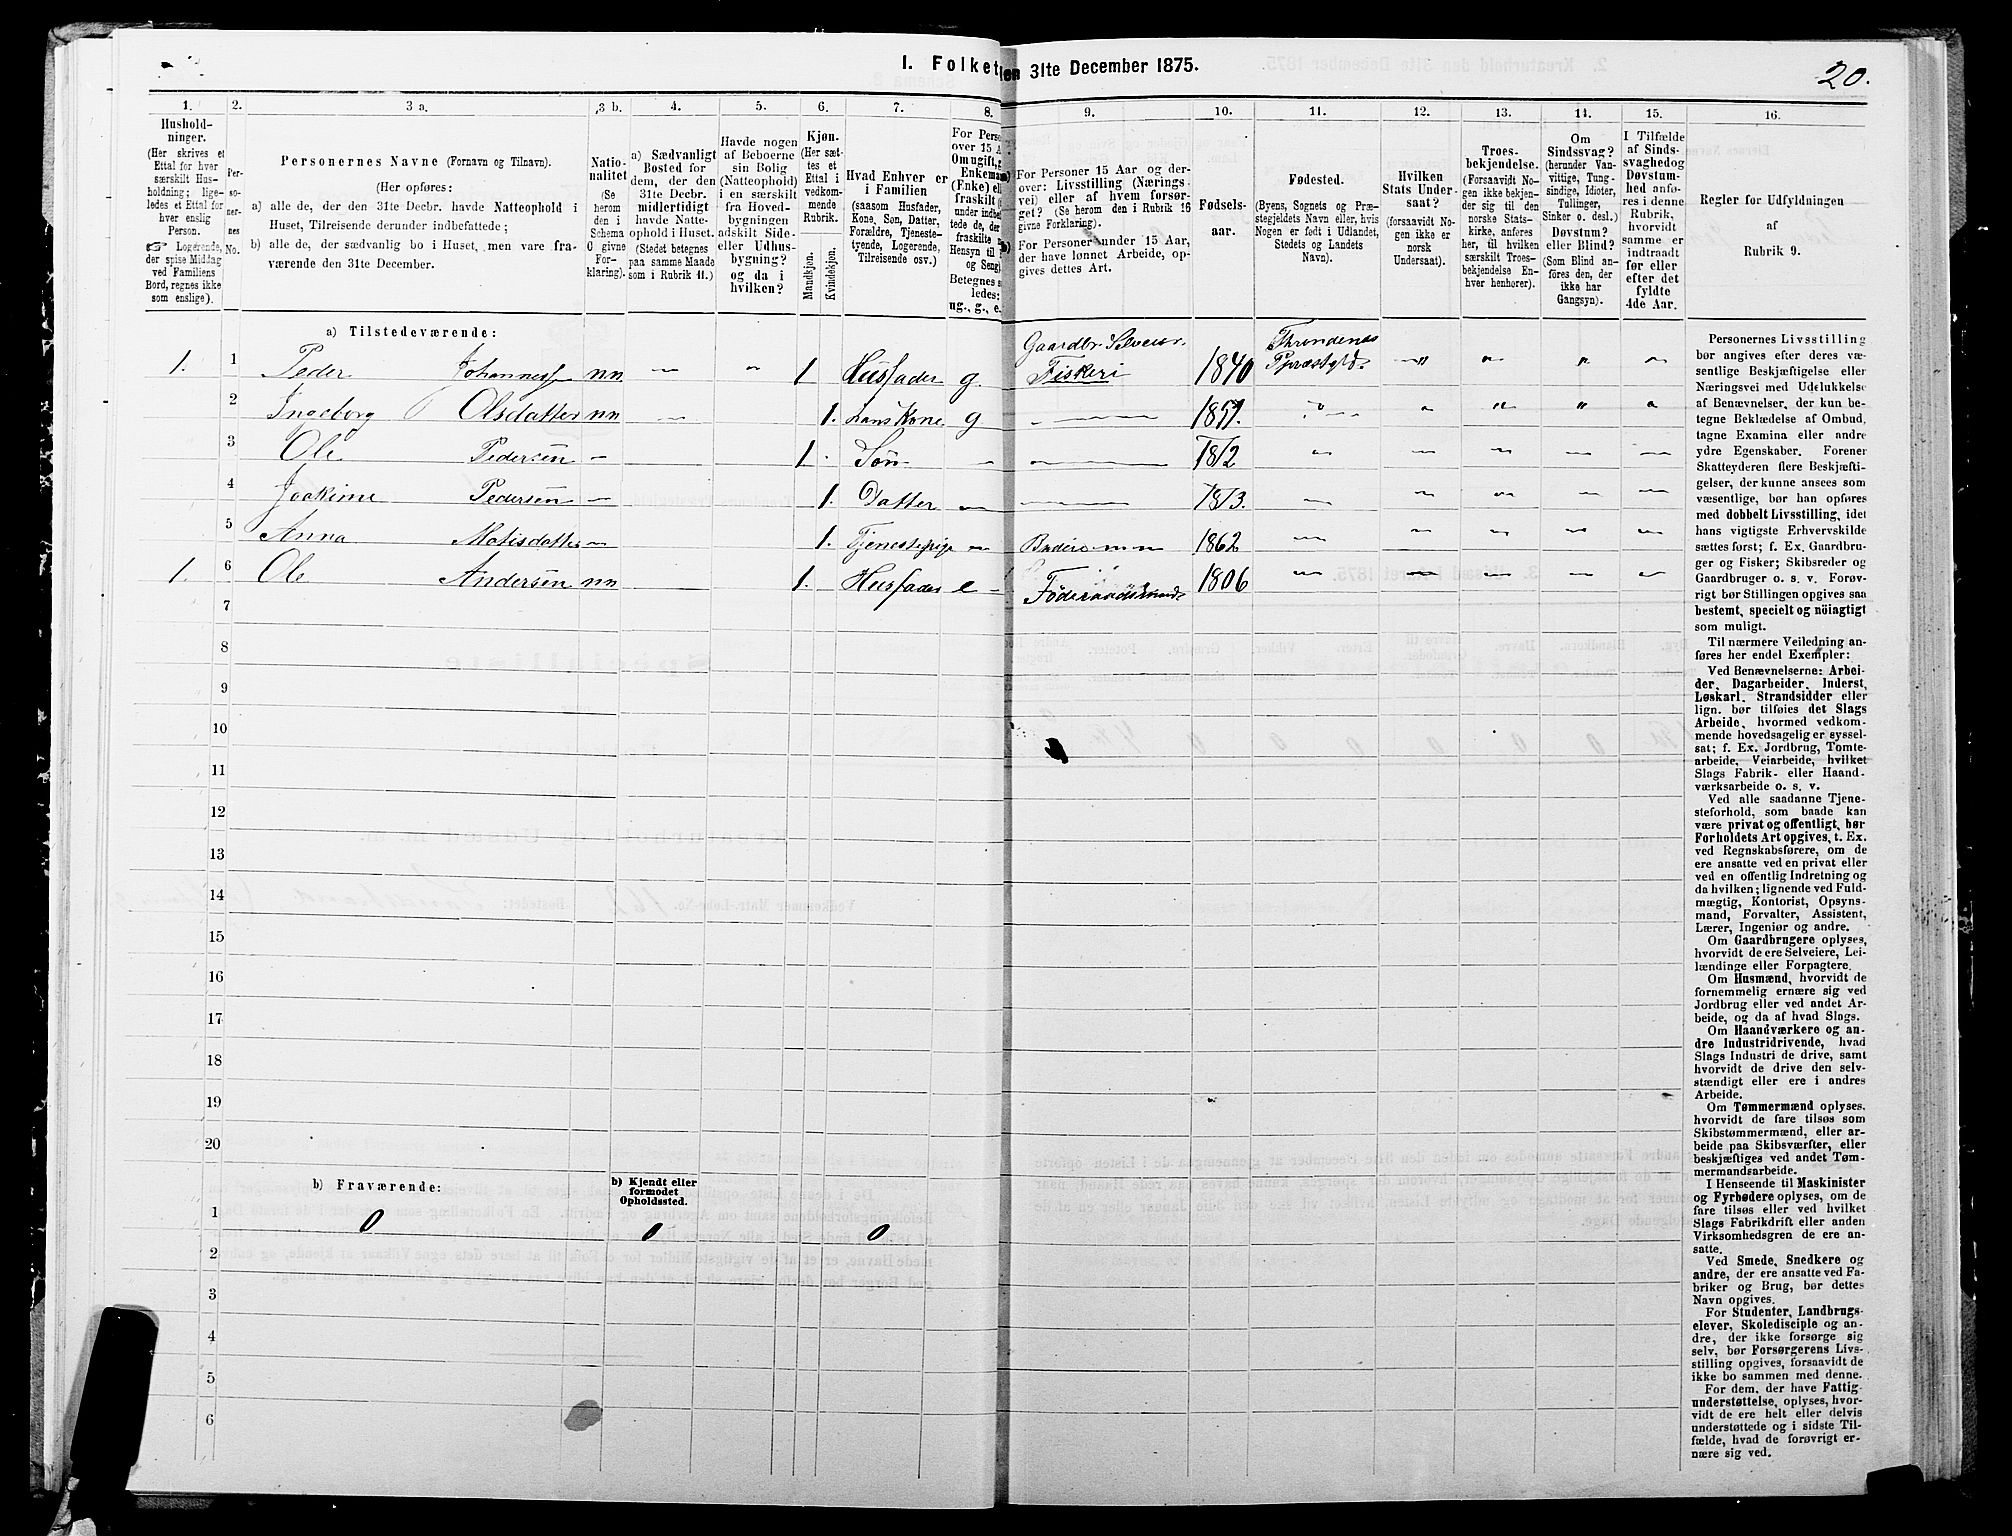 1. Folketællingen 31te December 1875.
20.
1.
2.
3 a.
3 b.
4.
5.
6.
7.
8.
9.
10.
11.
12.
13.
14.
15.
16.
Hushold-
ninger.
(Her skrives et
Ettal for hver
særskilt Hus-
holdning; lige-
ledes et Ettal for
hver enslig
Person.
☞ Logerende,
der spise Middag
ved Familiens
Bord, regnes ikke
som enslige).
Per-
so-
ner-
nes
No.
Personernes Navne (Fornavn og Tilnavn).
(Her opføres:
a) alle de, der den 31te Decbr. havde Natteophold i
Huset, Tilreisende derunder indbefattede;
b) alle de, der sædvanlig bo i Huset, men vare fra-
værende den 31te December.
Natio-
nalitet
(Se
herom
den i
Schema
O givne
For-
klaring).
a) Sædvanligt
Bosted for
dem, der den
31te Decbr.
midlertidigt
havde Natte-
ophold i Huset.
(Stedet betegnes
paa samme Maade
som i Rubrik 11.)
Havde nogen
af Beboerne
sin Bolig
(Natteophold)
i en særskilt
fra Hoved-
bygningen
adskilt Side-
eller Udhus-
bygning?
og da i
hvilken?
Kjøn.
(Her sæt-
tes et
Ettal i
vedkom-
mende
Rubrik.
Mandkjøn.
Kvindekjøn.
Hvad Enhver er
i Familien
(saasom Husfader,
Kone, Søn, Datter,
Forældre, Tjeneste-
tyende, Logerende,
Tilreisende osv.)
For Perso
over 15 A
Om ugift, g
Enkema
(Enke) ell
fraskilt (
under indbe
tede de, der
fraskilte
Hensyn til
og Seng
Betegnes s
ledes:
ug., g., e.
For Personer 15 Aar og der-
over: Livsstilling (Nærings-
vei) eller af hvem forsør-
get? (Se herom den i Rubrik 16
givne Forklaring).
For Personer under 15 Aar,
der have lønnet Arbeide, op-
gives dettes Art.
Fødsels-
aar.
Fødested.
(Byens, Sognets og Præ-
stegjeldets Navn eller, hvis
Nogen er født i Udlandet,
Stedets og Landets
Navn).
Hvilken
Stats Under-
saat?
(forsaavidt No-
gen ikke er
norsk
Undersaat).
Troes-
bekjendelse.
(Forsaavidt No-
gen ikke bekjen-
der sig til den
norske Stats-
kirke, anføres
her, til hvilken
særskilt Troes-
bekjendelse En-
hver henhører).
Om
Sindssvag?
(herunder Van-
vittige, Tung-
sindige, Idioter,
Tullinger,
Sinker o. desl.)
Døvstum?
eller Blind?
(Som Blind an-
føres den, der
ikke har
Gangsyn).
I Tilfælde
af Sinds-
svaghed og
Døvstum-
hed anfø-
res i denne
Rubrik,
hvorvidt
samme er
indtraadt
før eller
efter det
fyldte
4de Aar.
Regler for Udfyldningen
af
Rubrik 9.
a) Tilstedeværende:
1. 1 Peder Johanness nn. 1 Husfader g. Gaardbr. Selveier. Fiskeri 1840 Throndenes Præstgld.
2 Ingeborg Olsdatter nn 1. hans Kone g. 1851.
3 Ole Pedersen 1 Søn 1872
4 Joakime Pedersen 1. Datter 1873.
5 Anna Matisdatter 1. Tjenestepige 1862
1. 6 Ole Andersen nn 1. Husfader e Föderaadsmand 1806
7
8
9
10
11
12
13
14
15
16
17
18
19
20
b) Fraværende:
b) Kjendt eller
formodet
Opholdssted.
1 0 0 0
2
3
4
5
6
Personernes Livsstilling
bør angives efter deres væ-
sentlige Beskjæftigelse eller
Næringsvei med Udelukkelse
af Benævnelser, der kun be-
tegne Beklædelse af Ombud,
tagne Examina eller andre
ydre Egenskaber. Forener
Skatteyderen flere Beskjæfti-
gelser, der kunne ansees som
væsentlige, bør han opføres
med dobbelt Livsstilling, idet
hans vigtigste Erhvervskilde
sættes først; f. Ex. Gaardbru-
ger og Fisker; Skibsreder og
Gaardbruger o. s. v. Forøv-
rigt bør Stillingen opgives saa
bestemt, specielt og nöiagtigt
som muligt.
Til nærmere Veiledning an-
føres her endel Exempler:
Ved Benævnelserne: Arbei-
der, Dagarbeider, Inderst,
Løskarl, Strandsidder eller
lign. bør tilføies det Slags
Arbeide, hvormed vedkom-
mende hovedsagelig er syssel-
sat; f. Ex. Jordbrug, Tomte-
arbeide, Veiarbeide, hvilket
Slags Fabrik- eller Haand-
værksarbeide o. s. v.
Ved alle saadanne Tjene-
steforhold, som baade kan
være privat og offentligt, bør
Forholdets Art opgives, t. Ex.
ved Regnskabsførere, om de
ere ansatte ved en privat eller
ved en offentlig Indretning og
da hvilken; lignende ved Fuld-
mægtig, Kontorist, Opsyns-
mand, Forvalter, Assistent,
Lærer, Ingeniør og andre.
Om Gaardbrugere oplyses,
hvorvidt de ere Selveiere, Lei-
lændinge eller Forpagtere.
Om Husmænd, hvorvidt de
fornemmelig ernære sig ved
Jordbrug eller ved andet Ar-
beide, og da af hvad Slags.
Om Haandværkere og an-
dre Industridrivende, hvad
Slags Industri de drive, samt
hvorvidt de drive den selv-
stændigt eller ere i andres
Arbeide.
Om Tømmermænd oplyses,
hvorvidt de fare tilsøs som
Skibstømmermænd, eller ar-
beide paa Skibsværfter, eller
beskjæftiges ved andet Tøm-
mermandsarbeide.
I Henseende til Maskinister
og Fyrbødere oplyses, om de
fare tilsøs eller ved hvilket
Slags Fabrikdrift eller anden
Virksomhedsgren de ere an-
satte.
Ved Smede, Snedkere og
andre, der ere ansatte ved Fa-
briker og Brug, bør dettes
Navn opgives.
For Studenter, Landbrugs-
elever, Skoledisciple og an-
dre, der ikke forsørge sig
selv, bør Forsørgerens Livs-
stilling opgives, forsaavidt de
ikke bo sammen med denne.
For dem, der have Fattig-
understøttelse, oplyses, hvor-
vidt de ere helt eller delvis
understøttede og i sidste Til-
fælde, hvad de forøvrigt er-
nære sig ved.